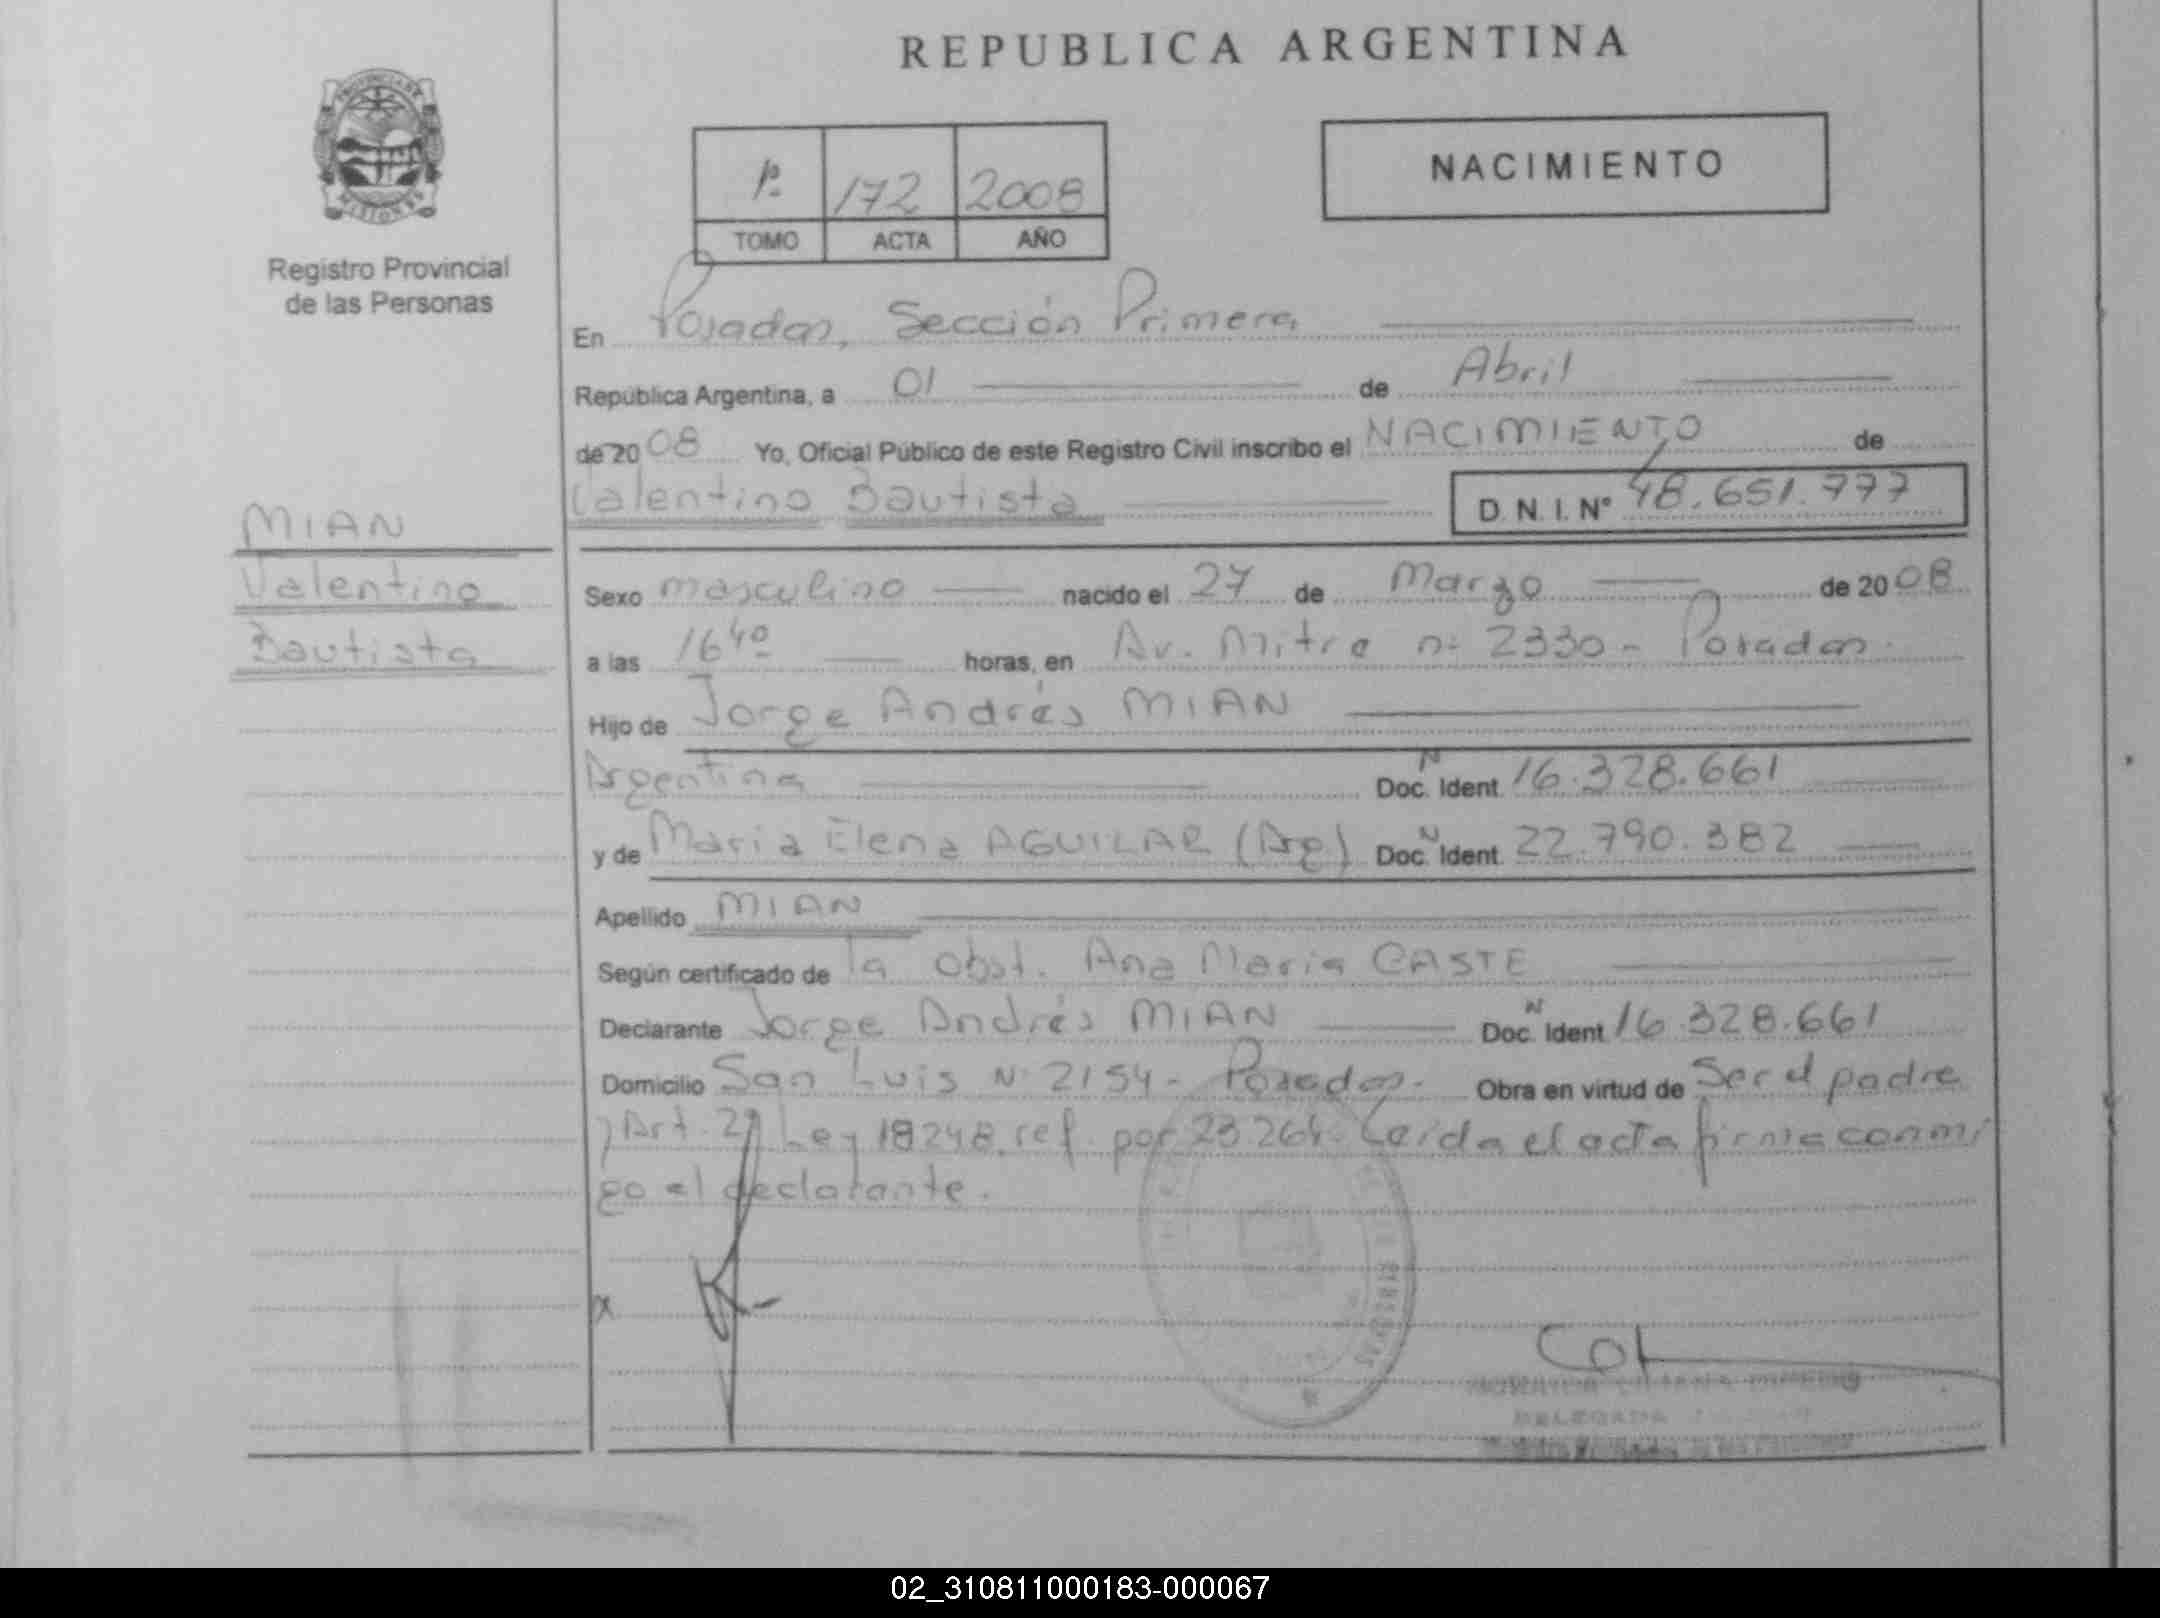 REPUBLICA ARGENTINA
PROVINCIA DE MISIONES
Registro Provincial
de las Personas
1º 172 2008
TOMO ACTA AÑO
NACIMIENTO
En Posadas, Sección Primera
República Argentina, a 01 de Abril
de 2008 Yo, Oficial Público de este Registro Civil inscribo el NACIMIENTO de
Valentino Bautista D. N. I. Nº 48.651.777
MIAN
Valentino
Bautista
Sexo masculino nacido el 27 de Marzo de 2008
a las 16 40 horas, en Av. Mitre nº 2330 - Posadas.
Hijo de Jorge Andrés MIAN
Argentina Doc. N Ident. 16.328.661
y de Maria Elena AGUILAR (Arg) Doc. N Ident. 22.790.382
Apellido MIAN
Según certificado de la obst. Ana Maria CASTE
Declarante Jorge Andrés MIAN Doc. N Ident. 16.328.661
Domicilio San Luis Nº 2154 - Posadas. Obra en virtud de Ser el padre
y Art. 2º Ley 18248 ref. por 23264. Leida el acta firma conmi
go el declarante.
x
DELEGADA
02_310811000183-000067